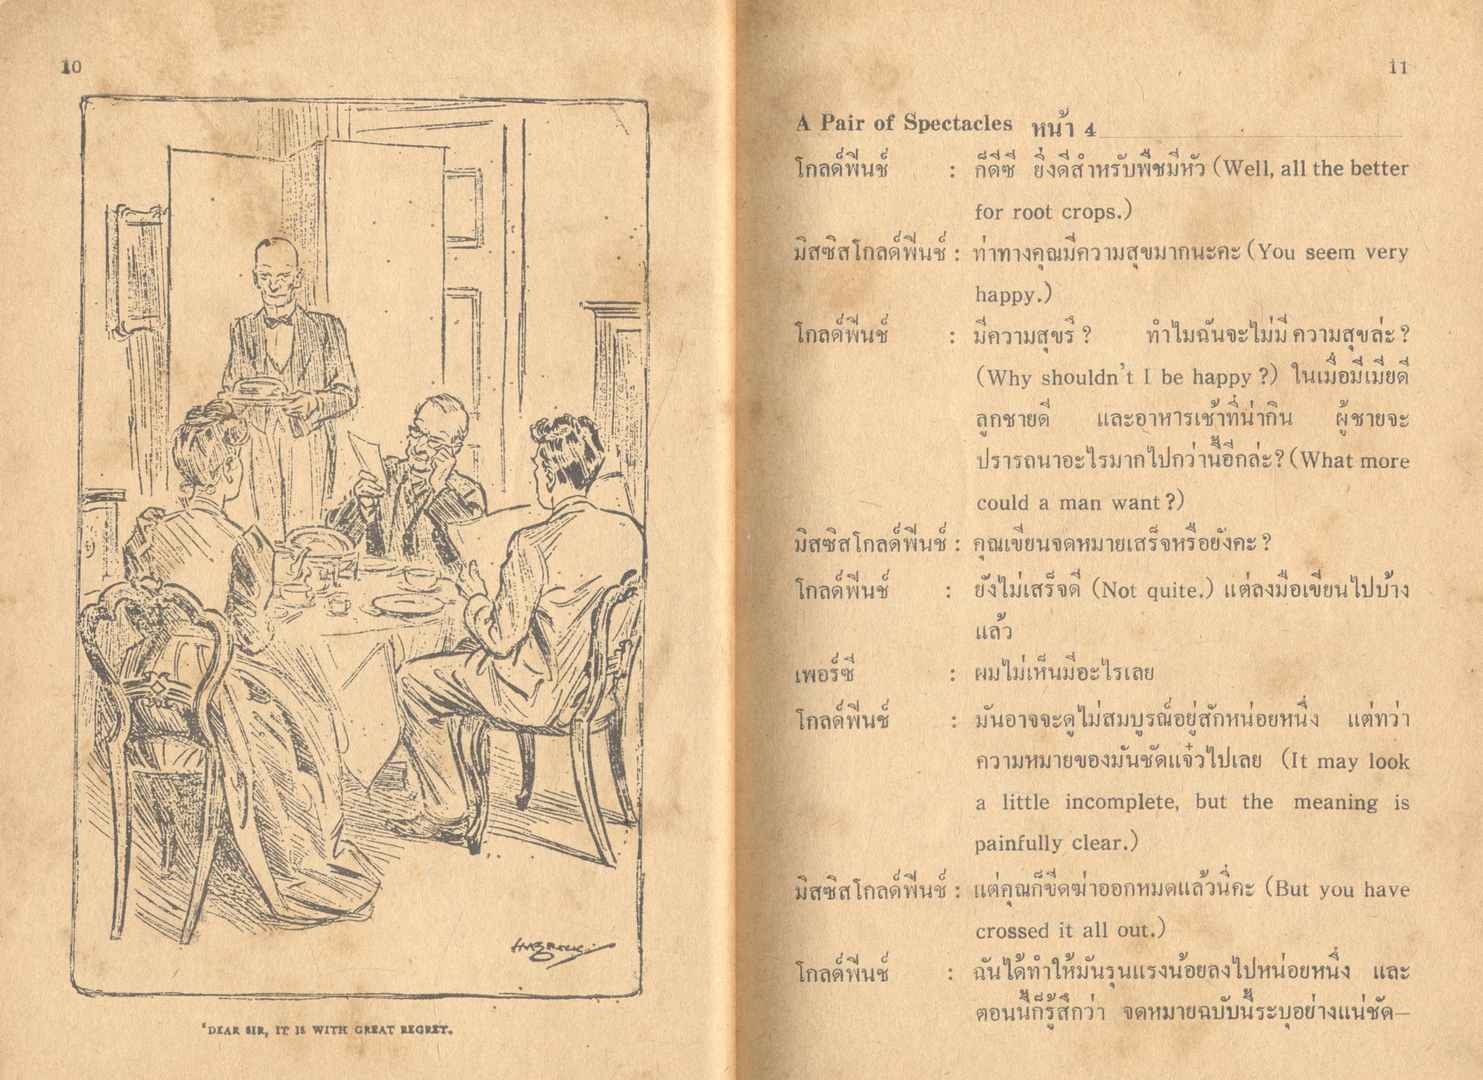 10
'DEAR SIR, IT IS WITH GREAT REGRET.
11
A Pair of Spectacles หน้า 4
โกลด์ฟีนช์ : ก็ดีซี ยิ่งดีสำหรับพืชมีหัว (Well, all the better
for root crops.)
มิสซิสโกลด์ฟีนช์ : ท่าทางคุณมีความสุขมากนะคะ (You seem very
happy.)
โกลด์ฟีนช์ : มีความสุขรึ ? ทำไมฉันจะไม่มีความสุขล่ะ ?
(Why shouldn't I be happy ?) ในเมื่อมีเมียดี
ลูกชายดี และอาหารเช้าที่น่ากิน ผู้ชายจะ
ปรารถนาอะไรมากไปกว่านี้อีกล่ะ? (What more
could a man want ?)
มิสซิสโกลด์ฟีนช์ : คุณเขียนจดหมายเสร็จหรือยังคะ ?
โกลด์ฟีนช์ : ยังไม่เสร็จดี (Not quite.) แต่ลงมือเขียนไปบ้าง
แล้ว
เพอร์ซี : ผมไม่เห็นมีอะไรเลย
โกลด์ฟีนช์ : มันอาจจะดูไม่สมบูรณ์อยู่สักหน่อยหนึ่ง แต่ทว่า
ความหมายของมันชัดแจ๋วไปเลย (It may look
a little incomplete, but the meaning is
painfully clear.)
มิสซิสโกลด์ฟีนช์ : แต่คุณก็ขีดฆ่าออกหมดแล้วนี่คะ (But you have
crossed it all out.)
โกลด์ฟีนช์ : ฉันได้ทำให้มันรุนแรงน้อยลงไปหน่อยหนึ่ง และ
ตอนนี้ก็รู้สึกว่า จดหมายฉบับนี้ระบุอย่างแน่ชัด–